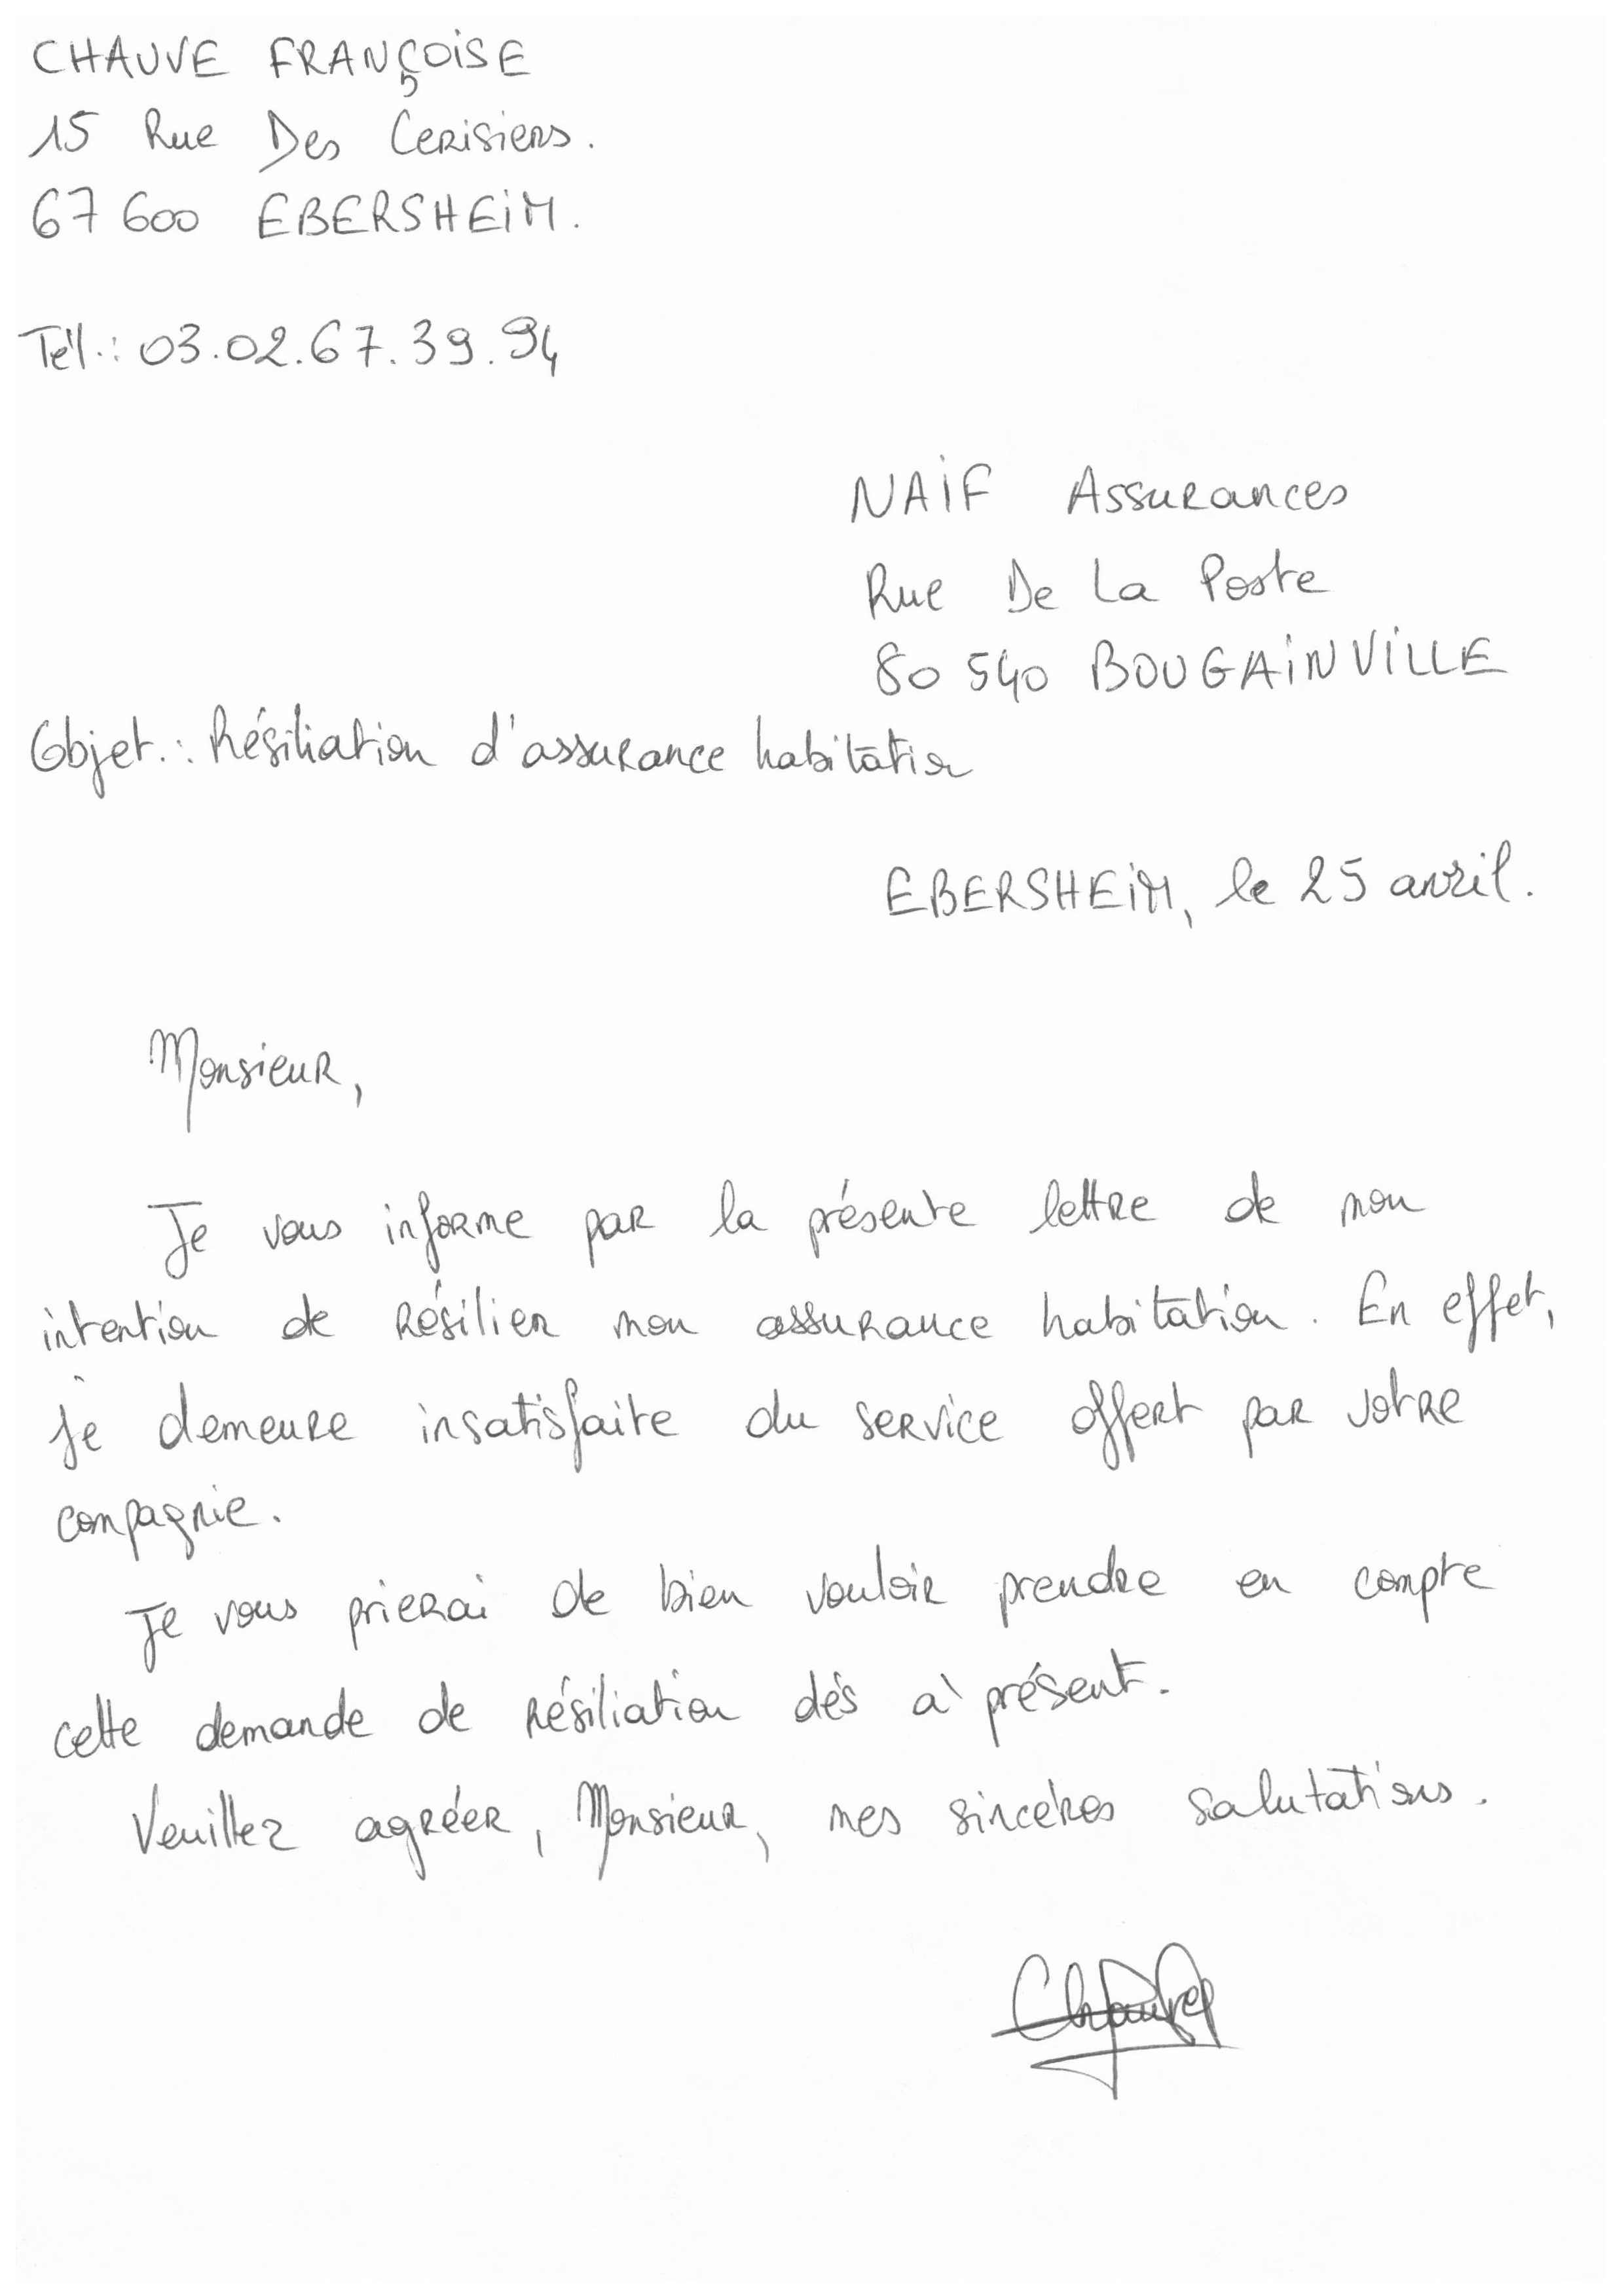 CHAUVE FRANÇOISE
15 Rue Des Cerisiers.
67 600 EBERSHEIM.
Tél.: 03.02.67.39.94
NAIF Assurances
Rue De La Poste
80 540 BOUGAINVILLE
Objet.: Résiliation d'assurance habitation
EBERSHEIM, le 25 avril.
Monsieur,
Je vous informe par la présente lettre de mon
intention de résilier mon assurance habitation. En effet,
je demeure insatisfaite du service offert par votre
compagnie.
Je vous prierai de bien vouloir prendre en compte
cette demande de résiliation dés à présent.
Veuillez agréer, Monsieur, mes sincéres salutations.